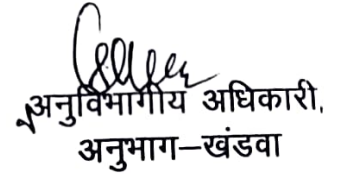 अनुविभागीय अधिकारी,
अनुभाग–खंडवा